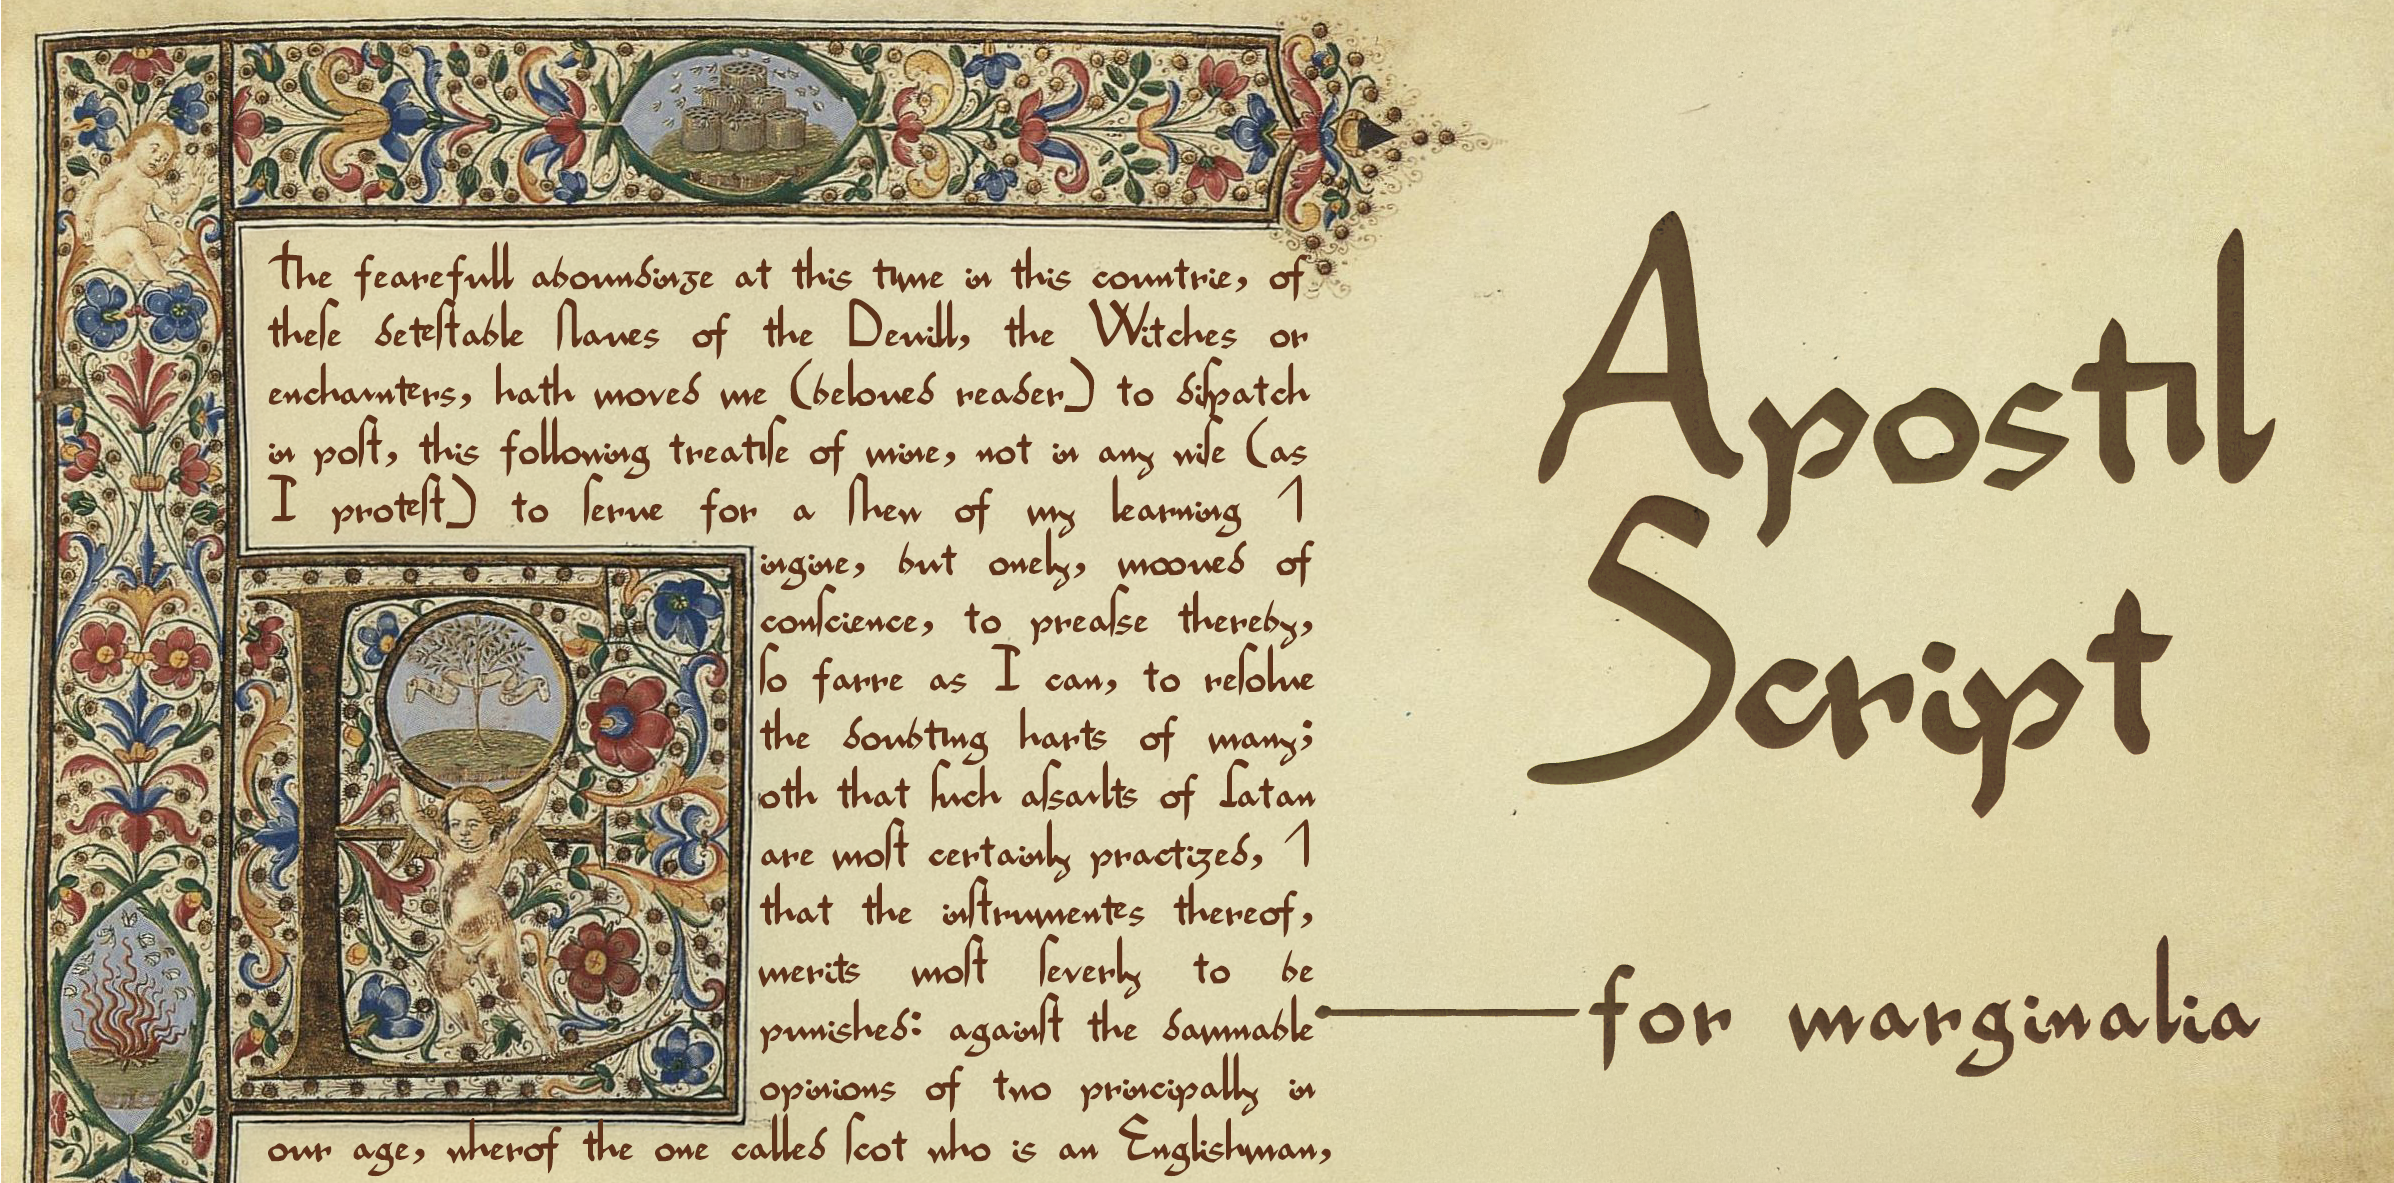 The fearefull aboundinge at this time in this countrie, of
theſe deteſtable ſlaves of the Devill, the Witches or
enchaunters, hath moved me (beloued reader) to diſpatch
in poſt, this following treatiſe of mine, not in any wiſe (as
I proteſt) to ſerve for a ſhew of my learning ⁊
ingine, but onely, mooued of
conſcience, to preaſse thereby,
ſo farre as I can, to reſolve
the doubting harts of many;
both that ſuch aſsaults of Satan
are moſt certainly practized, ⁊
that the inſtrumentes thereof,
merits moſt ſeverly to be
punished: againſt the damnable
opinions of two principally in
our age, wherof the one called ſcot who is an Englishman,
Apostil
Script
for marginalia